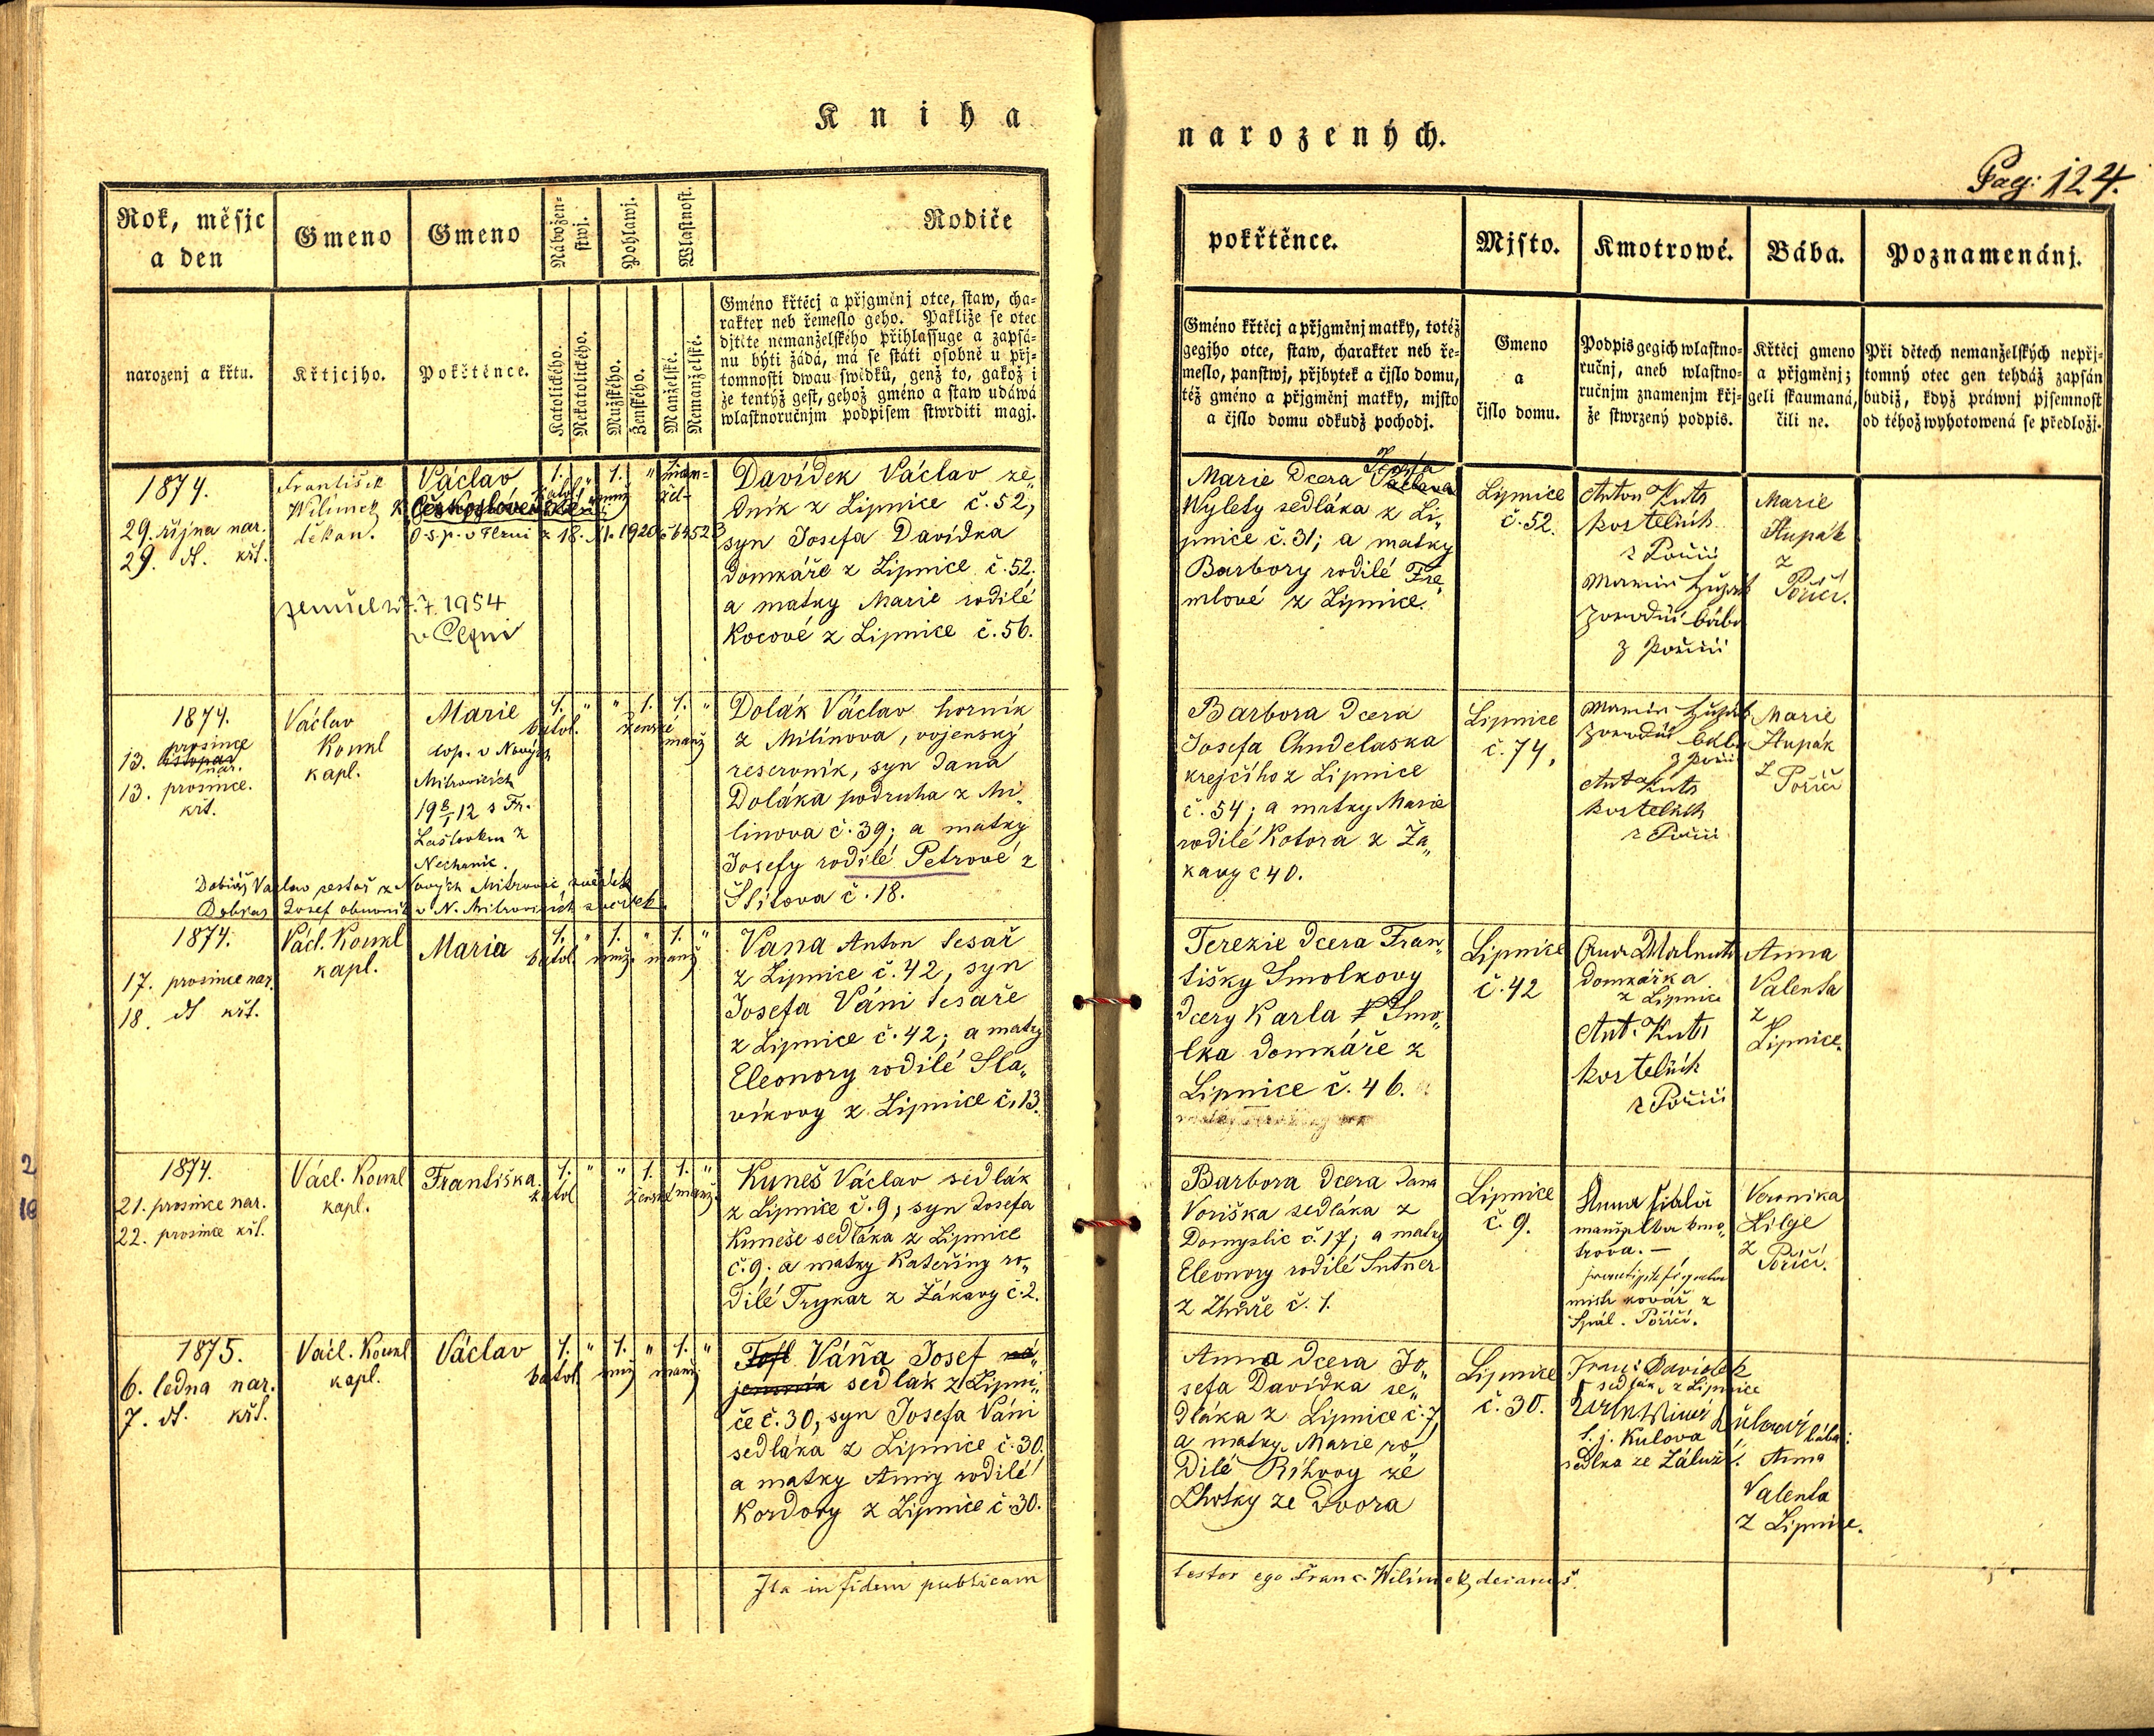 Kniha
narozených.
Pag: 124.
Rok, měsjc
a den
Gmeno
Gmeno
Nábožen-
stwj.
Pohlawj.
Wlastnost.
Rodiče
narozenj a křtu.
Křtjcjho.
Pokřtěnce.
Katolického.
Nekatolického.
Mužského.
Ženského.
Manželské.
Nemanželské.
Gméno křtěcj a přjgměnj otce, staw, cha-
rakter neb řemeslo geho. Pakliže se otec
djtěte nemanželského přihlassuge a zapsá-
nu býti žádá, má se státi osobně u přj-
tomnosti dwau swědků, genž to, gakož i
že tentýž gest, gehož gméno a staw udáwá
wlastnoručnjm podpisem stwrditi magj.
pokřtěnce.
Mjsto.
Kmotrowé.
Bába.
Poznamenánj.
Gméno křtěcj a přjgměnj matky, totéž
gegjho otce, staw, charakter neb ře-
meslo, panstwj, přjbytek a čjslo domu,
též gméno a přjgměnj matky, mjsto
a čjslo domu odkudž pochodj.
Gmeno
a
čjslo domu.
Podpis gegich wlastno-
ručnj, aneb wlastno-
ručnjm znamenjm křj-
že stwrzený podpis.
Křtěcj gmeno
a přjgměnj;
geli skaumaná,
čili ne.
Při dětech nemanželských nepřj-
tomný otec gen tehdáž zapsán
budiž, když práwnj pjsemnost
od téhož wyhotowená se předložj.
1874.
29. října nar.
29. dt. křt.
František
Wilímek
děkan.
Václav
Československé
o.s.p. v Plzni z 18. 1920 č 64523
zemřel 27.7.1954
v Plzni
1. " 1. " man-
žel-
Davídek Václav ze,,
dník z Lipnice č. 52,
syn Josefa Davídka
domkáře z Lipnice č. 52.
a matky Marie rodilé
Kocové z Lipnice č. 56.
Marie dcera Josefa Václava
Wylety sedláka z Li,,
pnice č. 31; a matky
Barbory rodilé Fre,,
mlové z Lipnice.
Lipnice
č. 52.
Anton Kuts
kostelník
z Poříčí
z Poříčí
Marie
Štupák
z
Poříčí.
1874.
prosince
13. listopad
nar.
13. prosince.
křt.
Václav
Koukl
kapl.
Marie
kop. v Nových
Mitrovicích
19 8/1 12 s Fr.
Laštovkou z
Nechanic.
Dobiáš Václav pestoš z Nových Mitrovic, svědek
Dobras Josef obuvník v N. Mitrovicích svědek
1. " " 1. 1. "
katol. ženské manž
Dolák Václav horník
z Milínova, vojenský
reservník, syn Jana
Doláka podruha z Mi,,
línova č. 39; a matky
Josefy rodilé Petrové z
Štítova č. 18.
Barbora dcera
Josefa Chudelaska
krejčího z Lipnice
č. 54; a matky Marie
rodilé Kotora z Ža,,
kavy č 40.
Lipnice
č. 74,
Ant. Kuts
kostelník
z Poříčí
Marie
Štupák
z
Poříčí
1874.
17. prosince nar.
18. dt křt.
Václ. Koukl
kapl.
Maria
1. " 1. " 1. "
katol. muž. manž
Vana Anton tesař
z Lipnice č. 42, syn
Josefa Váni tesaře
z Lipnice č. 42; a matky
Eleonory rodilé Sla,,
víkovy z Lipnice č. 13.
Terezie dcera Fran,,
tišky Smolkovy
dcery Karla Smo,,
lka domkáře z
Lipnice č. 46.
Lipnice
č. 42
domkářka
z Lipnice
Ant. Kuts
kostelník
z Poříčí
Anna
Valenta
z
Lipnice.
1874.
21. prosince nar.
22. prosince křt.
Václ. Koukl
kapl.
Františka.
1. " " 1. 1. "
katol. ženské manž.
Kuneš Václav sedlák
z Lipnice č. 9, syn Josefa
Kuneše sedláka z Lipnice
č. 9. a matky Kateřiny ro,,
dilé Trykar z Žákavy č. 2.
Barbora dcera Jana
Voriška sedláka z
Domyslic č. 17; a matky
Eleonory rodilé Sutner
z Zhůře č. 1.
Lipnice
č. 9.
Anna Fiala
manželka kmo,,
trova. —
mistr kovář z
Spál. Poříčí.
Veronika
Lilge
z
Poříčí.
1875.
6. ledna nar.
7. dt. křt.
Václ. Koukl
kapl.
Václav
1. " 1. " 1. "
katol. muž manž
Váňa Josef ná,,
jemník sedlák z Lipni,,
če č. 30, syn Josefa Váni
sedláka z Lipnice č. 30.
a matky Anny rodilé
Kordovy z Lipnice č. 30.
Anna dcera Jo,,
sefa Davídka se,,
dláka z Lipnice č. 7,
a matky Marie ro,,
dilé Říhovy ze
Lhotky ze dvora
Lipnice
č. 30.
Franc Davidek
sedlák z Lipnice
t. j. Kulova
sedlka ze Záluží.
bába:
Anna
Valenta
z Lipnice.
Ita in fidem publicam
testor ego Franc. Wilímek, decanus.
2
18